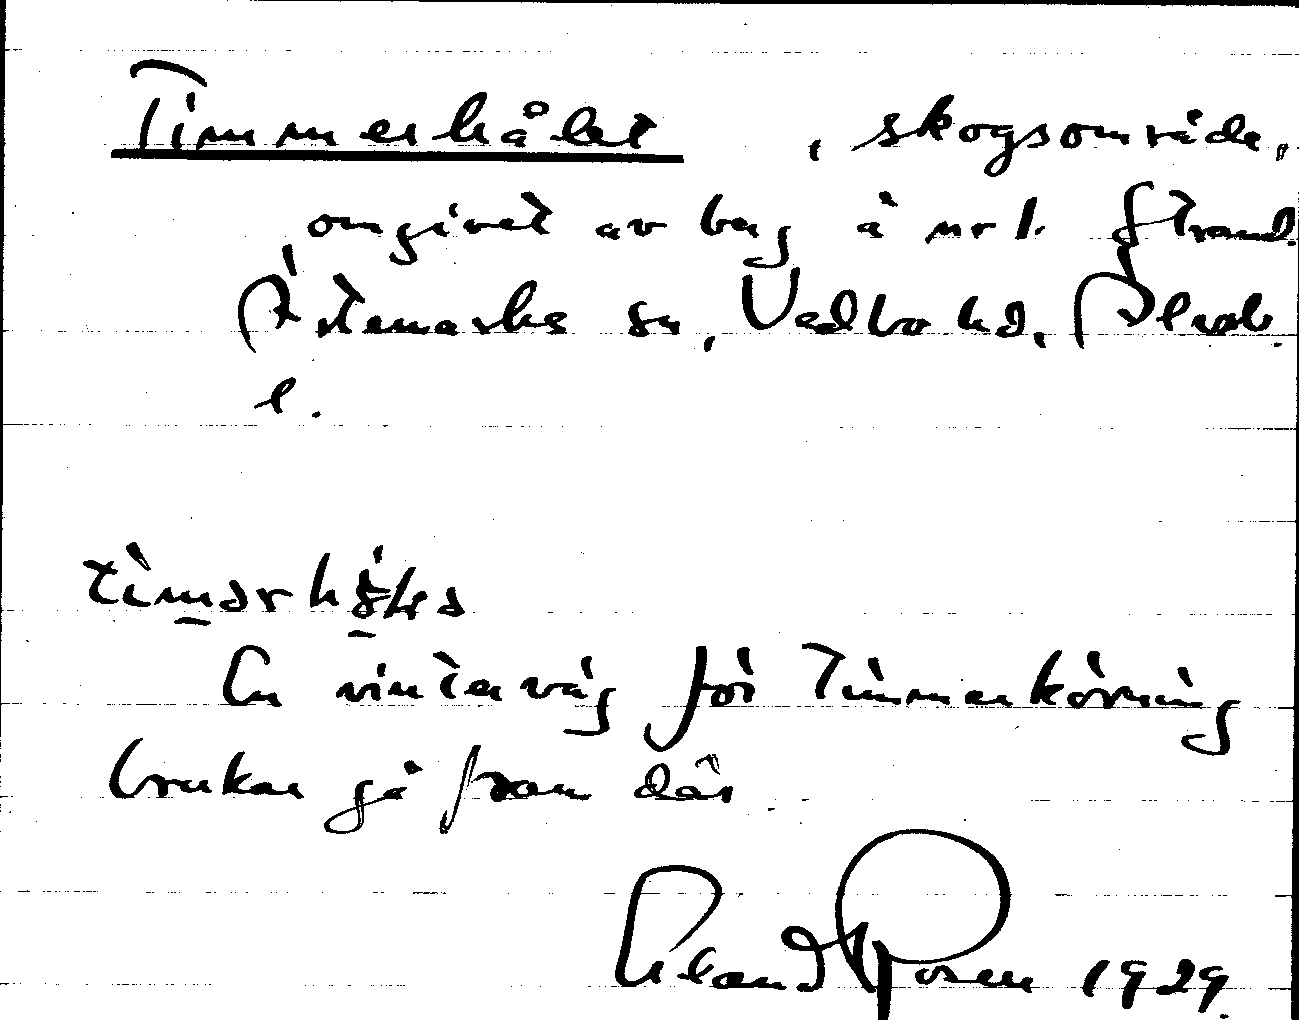 Timmerhålet, skogsområde,
omgivet av berg å nr 1. Strand.
Årtemarks sn, Vedbo hd, Älvsb.
l.
En vinterväg för timmerkörning
brukar gå fram där.
Rosen 1929.